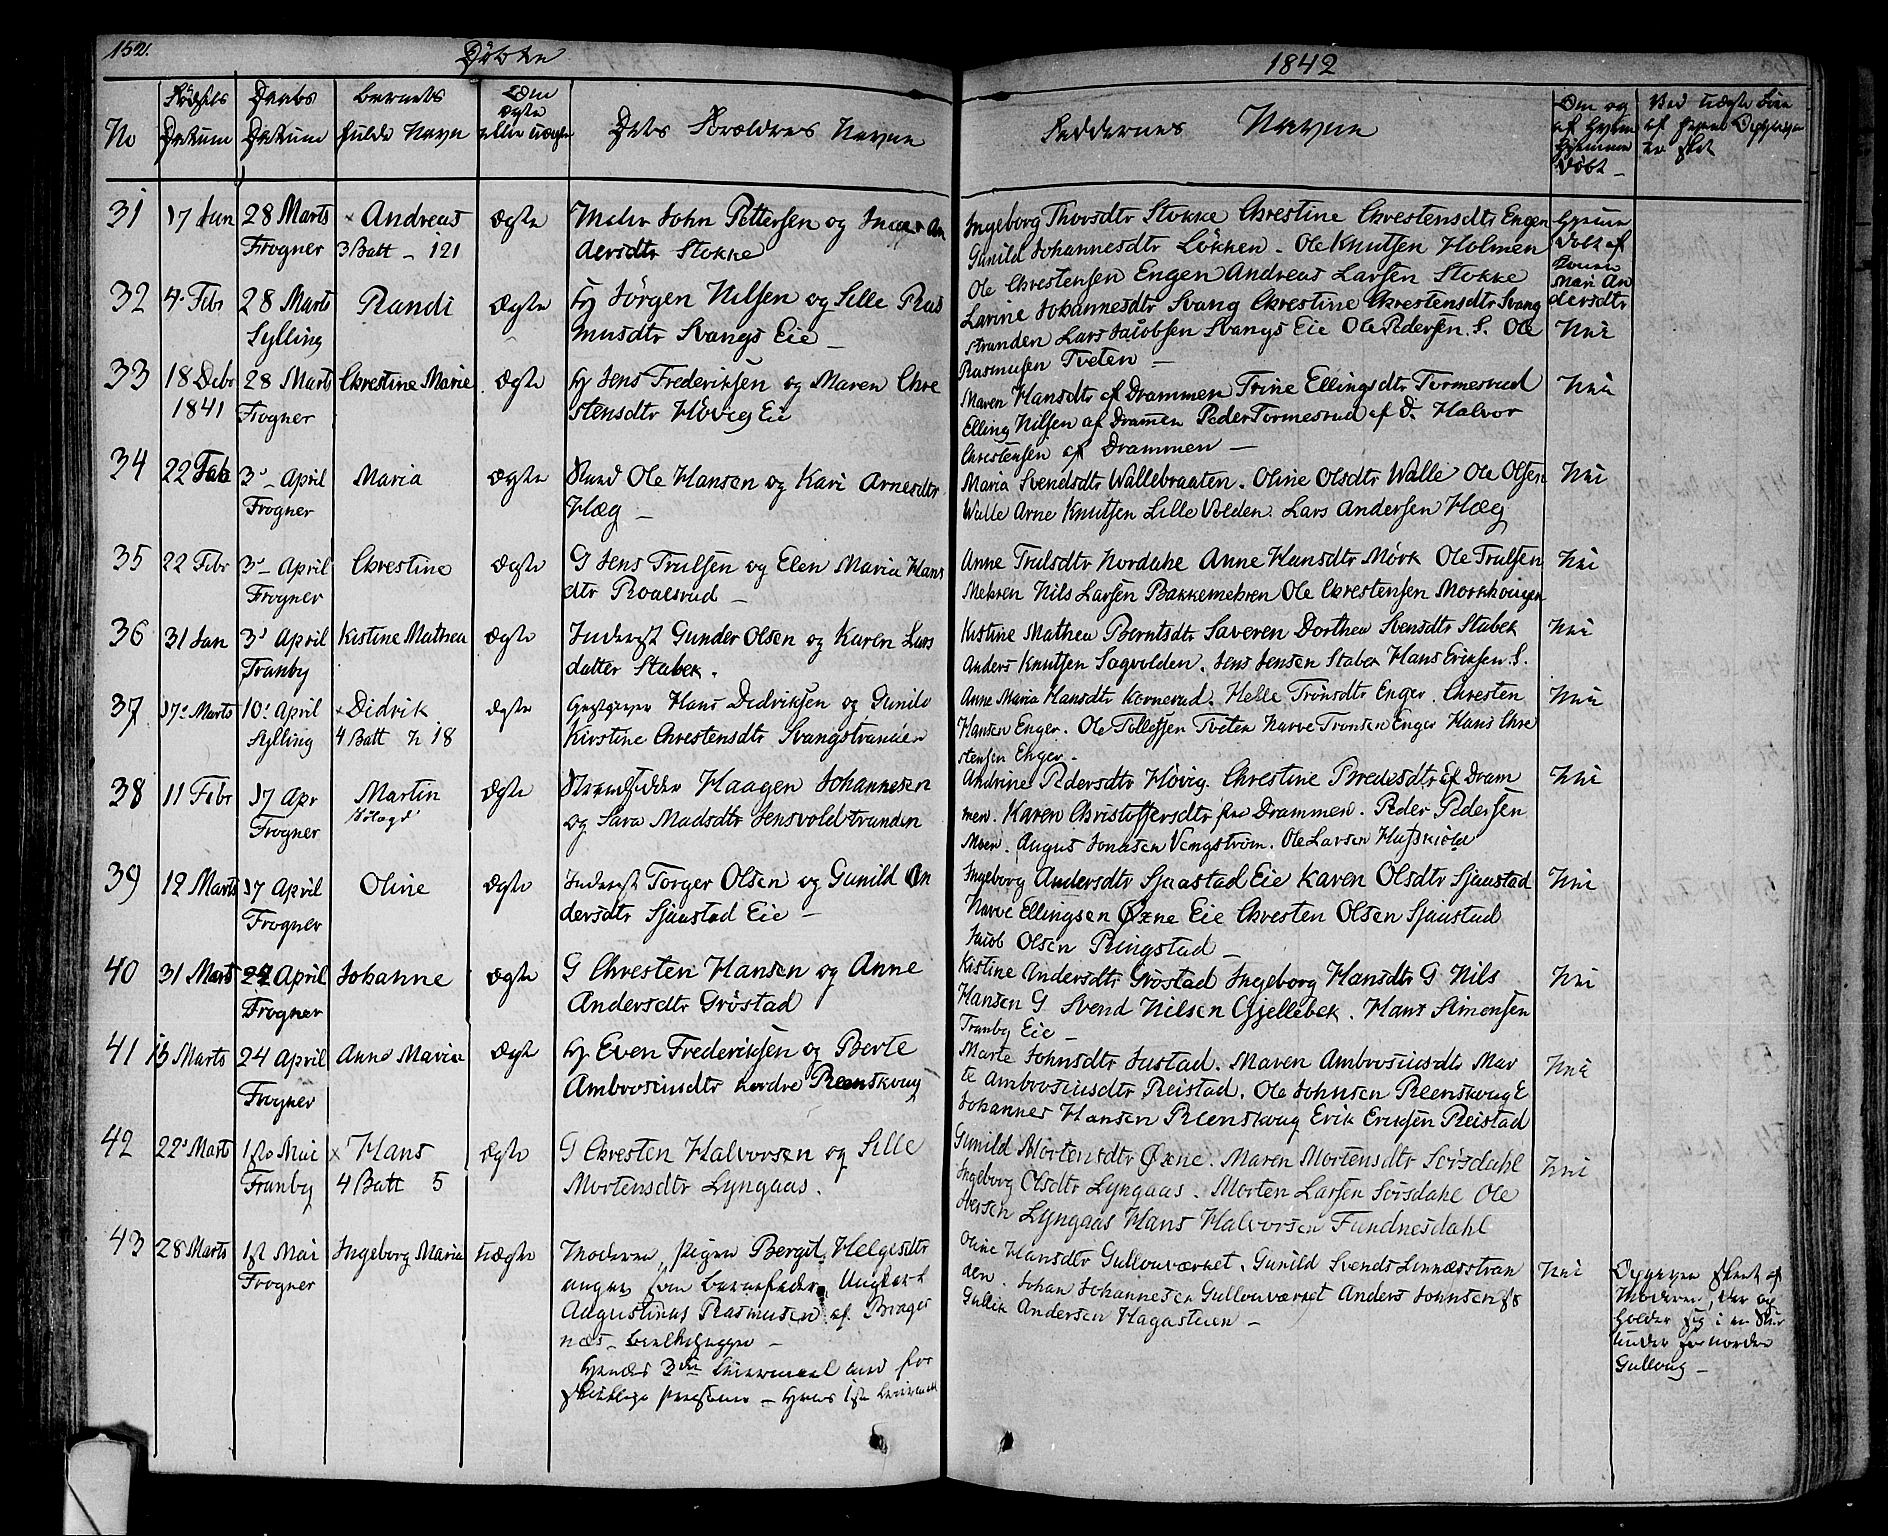 152.
Döbte
1842
No
Födsels Datum
Daabs Datum
Barnets fulde Navn
Om ægte eller uægte
Dets Forældres Navne
Faddernes Navne
Om og af hvem hjemme döbt
Ved uægte
31 17 Jan 28 Marts Andreas ægte Maler John Pettersen og Inger An
Frogner 3 Batt - 121 dersdtr Stokke
Ingeborg Thorsdtr Stokke Chrestine Chrestensdtr Engen
Gunild Johannesdtr Lökken. Ole Knutsen Holmen
Ole Chrestensen Engen Andreas Larsen Stokke
Hjemme döbt af Mari Andersdtr
32 4 Febr 28 Marts Randi ægte Hj Jörgen Nilsen og Sille Ras
Sylling musdtr Svangs Eie
Larine Johannesdtr Svang Chrestine Chrestensdtr Svang
stranden Lars Jacobsen Svangs Eie Ole Pedersen S. Ole Nei
Rasmusen Tveten
33 18 Debr 28 Marts Chrestine Marie ægte Hj Jens Frederiksen og Maren Chre
1841 Frogner stensdtr Hövig Eie
Maren Hansdtr af Drammen Trine Ellingsdtr Tormesrud Nei
Elling Nilsen af Dramen Peder Tormesrud af D. Halvor
Christensen af Drammen
34 22 Feb 3 April Maria ægte Ole Hansen og Kari Arnesdtr
Frogner Hæg
Maria Svendsdtr Wallebraaten. Oline Olsdtr Walle Ole Olsen Nei
Walle Arne Knutsen Lille Volden. Lars Andersen Hæg
35 22 Febr 3 April Chrestine ægte G Jens Trulsen og Elen Maria Hans
Frogner dtr Roalsrud
Anne Trulsdtr Nordahe Anne Hansdtr Mörk Ole Trulsen Nei
Mehren Nils Larsen Bakkemehren Ole Chrestensen
36 31 Jan 3 April Kistine Mathea ægte Inderst Gunder Olsen og Karen Lars
Tranby datter Stabek.
Kistine Mathea Berntsdtr Saveren Dorthea Svensdtr Stabek Nei
Anders Knutsen Sagvolden. Jens Jensen Stabek Hans Eriksen S.
37 17 Marts 10 April Didrik ægte Hans Didriksen og Gunild
Sylling 4 Batt N 18 Kirstine Chrestensdtr Svangstranden
Anne Maria Hansdtr Helle Tronsdtr Enger. Chresten Nei
Hansen Enger. Ole Tollefsen Tveten Narve Tronsen Enger Hans Chre
stensen Enger.
38 11 Febr 17 Apr Martin ægte Strandsidder Haagen Johannesen
Frogner og Sara Madsdtr Jensvoldstranden
Andrine Pedersdtr Hövig. Chrestine Bredesdtr af Dram Nei
men. Karen Christoffersdtr fra Drammen. Peder Pedersen
Moen. August Jonasen Vengström. Ole Larsen
39 12 Marts 17 April Oline ægte Inderst Torger Olsen og Gunild An
Frogner dersdtr Sjaastad Eie
Ingeborg Andersdtr Sjaastad Eie Karen Olsdtr Sjaastad Nei
Narve Ellingsen Øxne Eie Chresten Olsen Sjaastad
Jacob Olsen Ringstad
40 31 Marts 24 April Johanne ægte G Chresten Hansen og Anne
Frogner Andersdtr Gröstad
Kistine Andersdtr Gröstad Ingeborg Hansdtr G Nils Nei
Hansen G Svend Nilsen Gjellebek. Hans Simonsen
Tranby Eie
41 13 Marts 24 April Anne Maria ægte Hj Even Frederiksen og Berte
Frogner Ambrosiusdtr nordre Reenskoug
Marte Johnsdtr Justad. Maren Ambrosiusdtr Mar Nei
te Ambrosiusdtr Reistad. Ole Johnsen Reenskoug E
Johannes Hansen Reenskoug Erik Eriksen Reistad
42 22 Marts 1ste Mai Hans ægte G Chresten Halvorsen og Sille
Tranby 4 Batt 5 Mortensdtr Lyngaas.
Gunild Mortensdtr Øxne. Maren Mortensdtr Sörsdahl Nei
Ingeborg Olsdtr Lyngaas. Morten Larsen Sörsdahl Ole
Iversen Lyngaas Hans Halvorsen Fundnesdahl
43 28 Marts 1ste Mai Ingeborg Maria uægte Moderen Pigen Bergit Helgesdtr
Frogner angav som Barnefader Ungkarl
Augustinus Rasmusen af Brager
næs
Hendes 3die Leiermaal med for
skjellige Personer - Hans 1ste Leiermaal
Oline Hansdtr Gullouværket. Gunild Svends Linnæsstran Nei
den. Johan Johannesen Gullouværket Anders Johnsen
Gullik Andersen Hagasteien
Opgivn skeet af Moderen, der op
holder sig i en Stue
under nordre
Gulloug